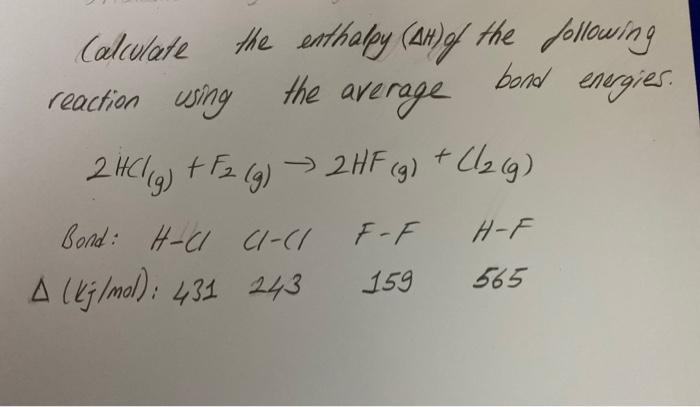 Calculate the enthalpy (ΔH) of the following
reaction using the average bond energies.
2HCl(g) + F2 (g) → 2HF (g) + Cl2 (g)
Bond: H-Cl Cl-Cl F-F H-F
Δ (kj/mol): 431 243 159 565